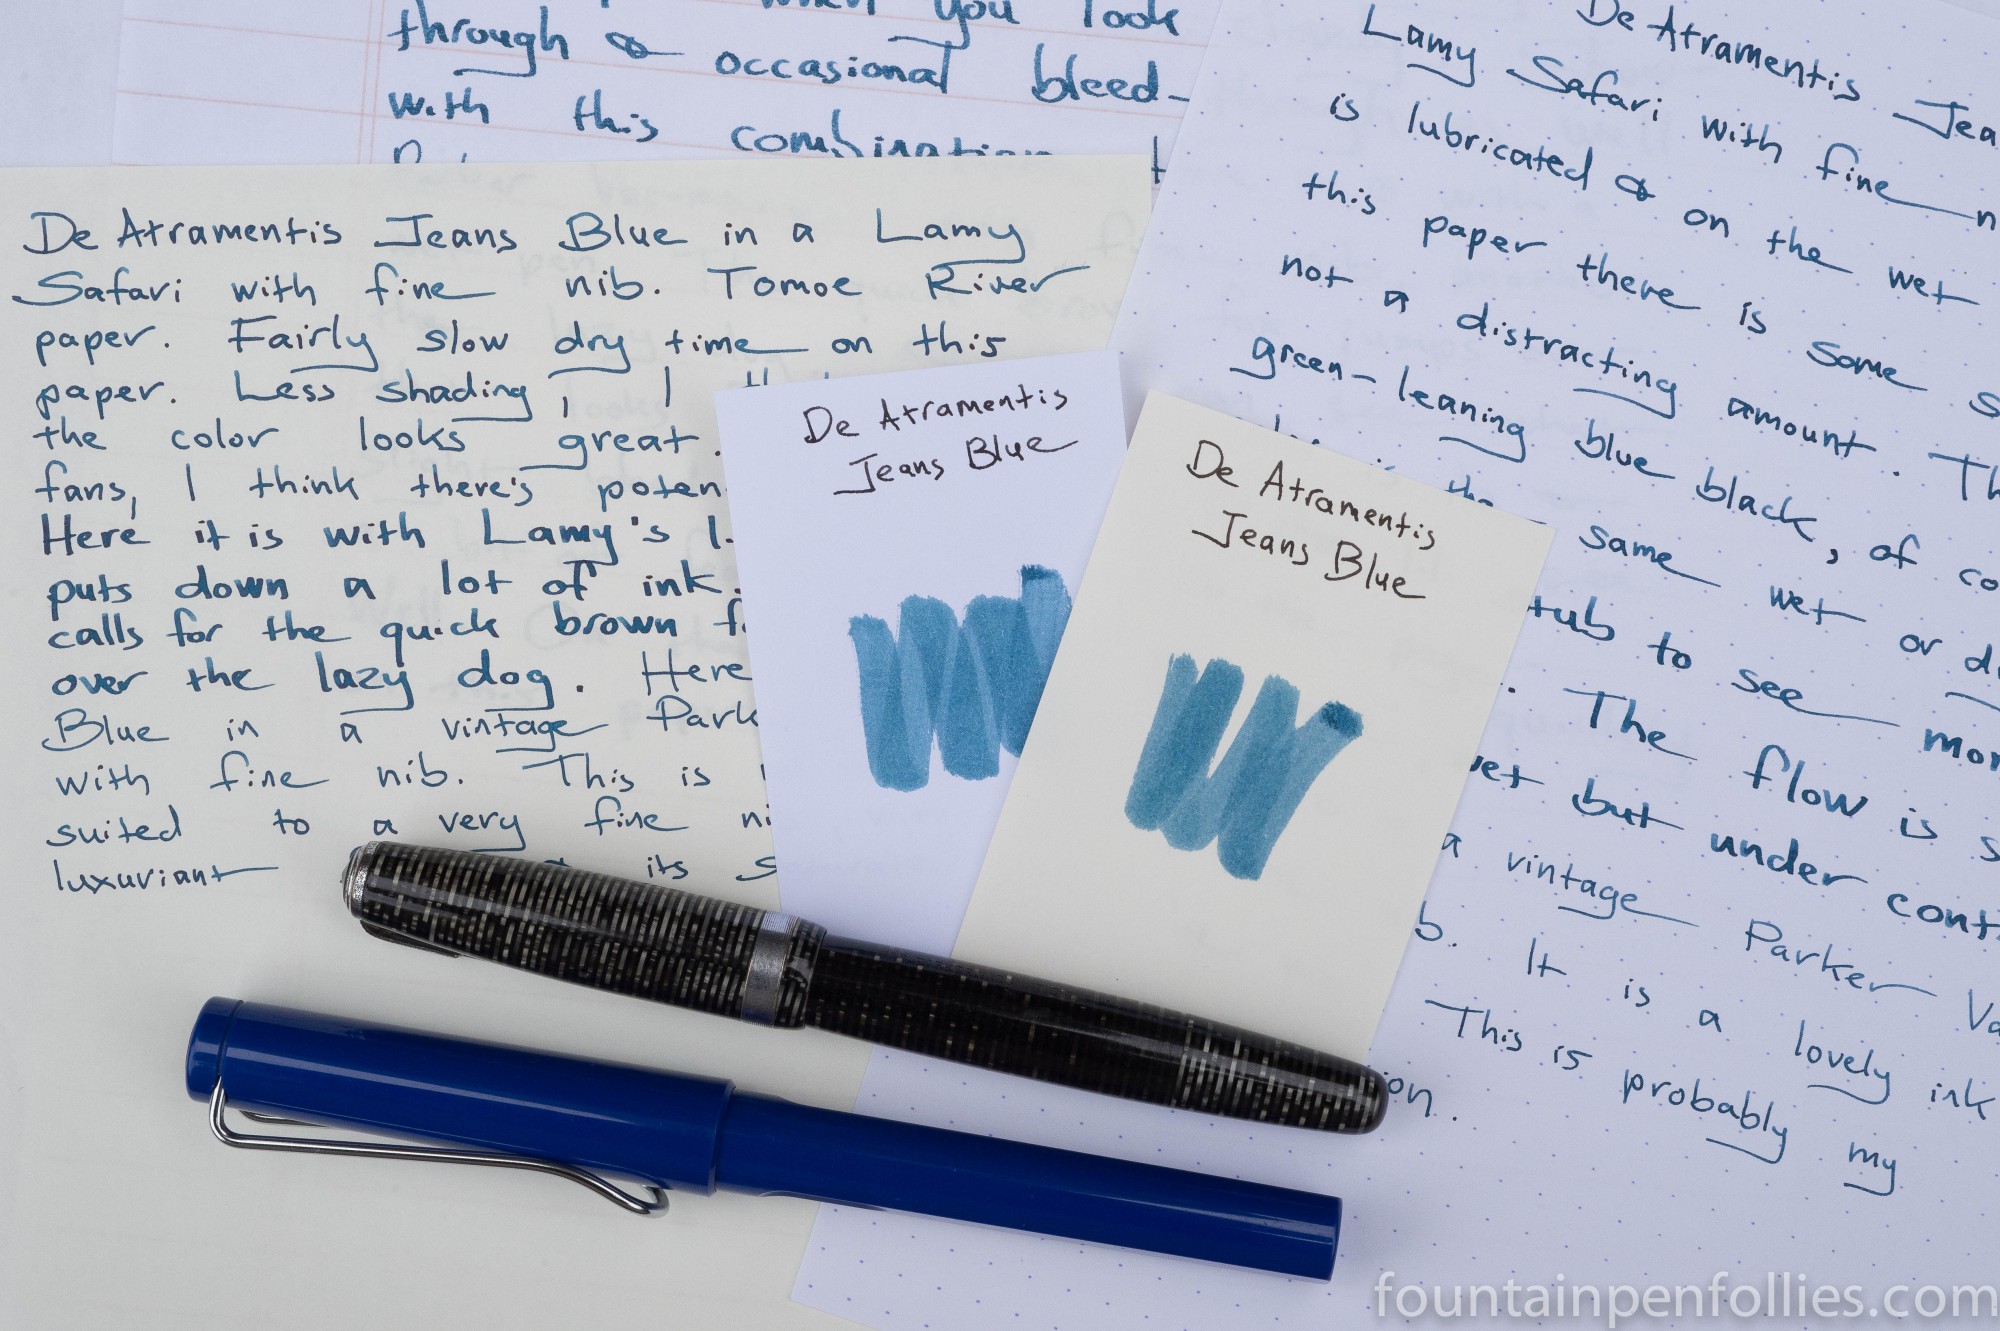 when you look
through & occasional bleed-
with this combination
De Atramentis Jeans Blue in a Lamy
Safari with fine nib. Tomoe River
paper. Fairly slow dry time on this
paper. Less shading, I
the color looks great.
fans, I think there's
Here it is with Lamy's
puts down a lot of ink.
calls for the quick brown
over the lazy dog. Here
Blue in a vintage
with fine nib. This is
suited to a very fine
luxuriant its
De Atramentis
Jeans Blue
De Atramentis
Jeans Blue
De Atramentis
Lamy Safari with fine
is lubricated & on the wet
this paper there is some
not a distracting amount.
green-leaning blue black, of
the same wet or
to see
The flow is
but under
a vintage Parker
It is a lovely ink
This is probably my
fountainpenfollies.com